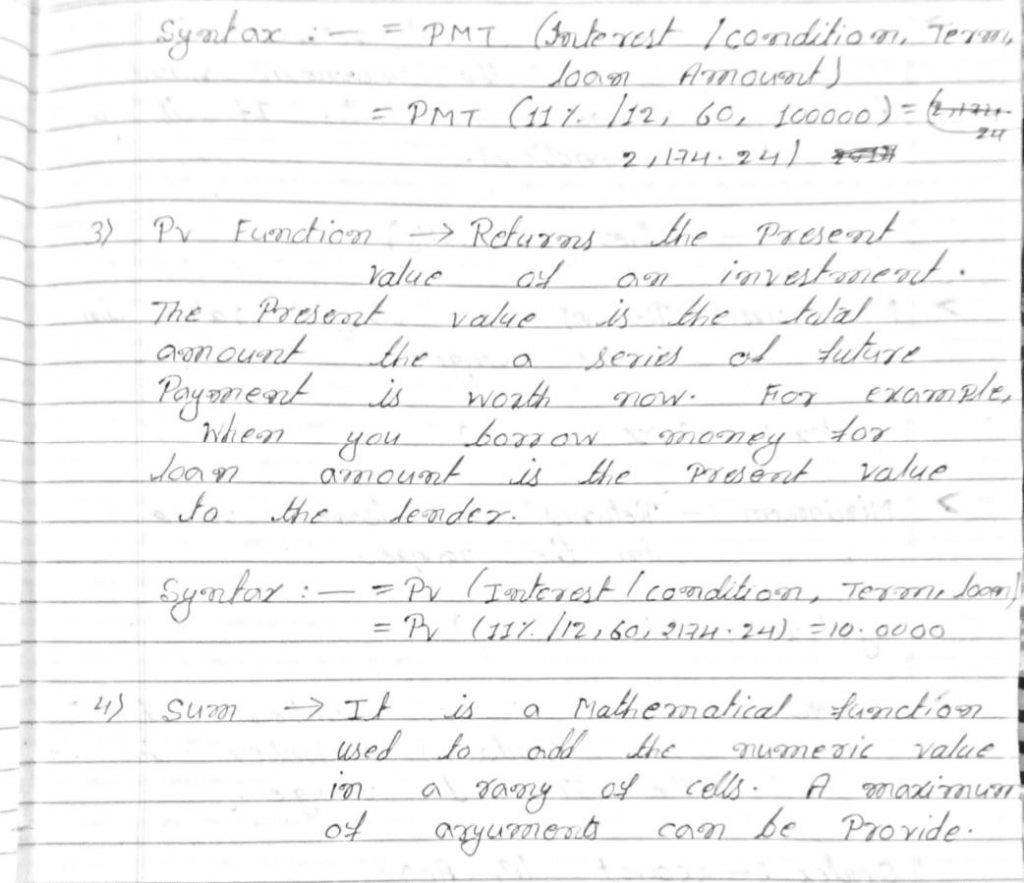 Syntax :— = PMT (Interest / condition, Term,
loan Amount)
= PMT (11% /12, 60, 100000) =
2,174.24)
3) Pv Function → Returns the Present
value of an investment.
The Present value is the total
amount the a series of future
Payment is worth now. For example,
When you borrow money for
loan amount is the Present value
to the lender.
Syntax :— = Pv (Interest / condition, Term, loan)
= Pv (11% /12, 60, 2174.24) = 10.0000
4) Sum → It is a Mathematical function
used to add the numeric value
in a rang of cells. A maximum
of arguments can be Provide.